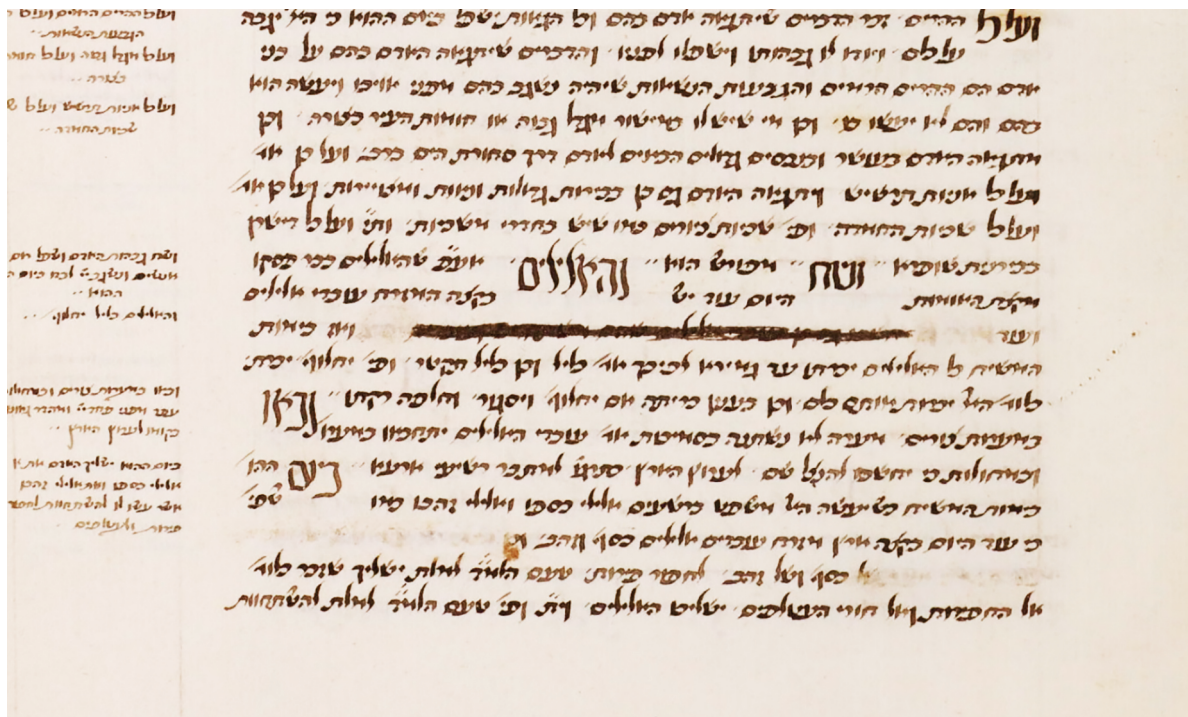 ועל כל ההרים זכר הדברים שיתגאה אדם בהם וכל הגאות ישפל ביום ההוא כי האל יגבה
על כלם ויודו לו גבהותו וישפלו לפניו והדברים שיתגאה האדם בהם על בני
אדם הם ההרים הרמים והגבעות הנשאות שיהיה נשגב בהם מפני אויביו ויעשה הוא
בהם והם לא יעשו לו וכן מי שיש לו מגדל גבוה או חומות העיר בצורה וכן
מתגאה האדם בעשר ובנכסים גדולים הבאים לאדם דרך סחורת הים ועל כן אמ'
ועל כל אניות תרשיש ויתגאה האדם גם כן בבירות גדולות ועל כן אמ'
ועל כל שכיות החמדה ופי' שכיות כיורים כמו שיש בחדרי משכית ות"י ועל כל דשרן
בבירנית שופרא ושח מבואר הוא והאלילים אע"פ שהאלילים כבר פסקו
מקצת האומות היום עוד יש בקצה המזרח עובדי אלילים
ועוד ואז בימות
המשיח כל האלילים יכרתו עד לפיכך אמ' כליל וכן כליל תקטר ופי' יחלוף יכרת
כלו' האל יכרית אותם כלם וכן בענין כריתה אם יחלוף ויסגיר וחלפה רקתו ובאו
במערות צורים לא נשתנה בסמיכות אמ' עובדי האלילים יתחבאו במערות
ובמחלות כי יחשבו להנצל שם לערוץ הארץ למתבר רשיעי ארעא ביום ההוא
בימות המשיח כשיעשה האל משפט ברשעים אלילי כספו ואלילי זהבו כמו שפי'
כי עוד היום בקצה ארץ מזרח עובדים אלילים כסף וזהב
כסף ושל זהב לחפור פירות טעם הלמ"ד למלת ישליך שזכר כלו'
אל החפירות ואל חורי העטלפים ישליכו האלילים ות"י ופי' טעם הלמ"ד למלת להשתחוות
ועל כל ההרים הרמים ועל כל
הגבעות הנשאות
ועל כל מגדל גבה ועל כל חומה
בצורה
ועל כל אניות תרשיש ועל כל ש
שכיות החמדה
ושח גבהות האדם ושפל רום
אנשים ונשגב יי' לבדו ביום ה
ההוא
והאלילים כליל יחלוף
ובאו במערות צורים ובמחילות
עפר מפני פחד יי' ומהדר גאונו
בקומו לערוץ הארץ
ביום ההוא ישליך האדם את א
אלילי כספו ואת אלילי זהבו
אשר עשו לו להשתחוות לחפר
פירות ולעטלפים